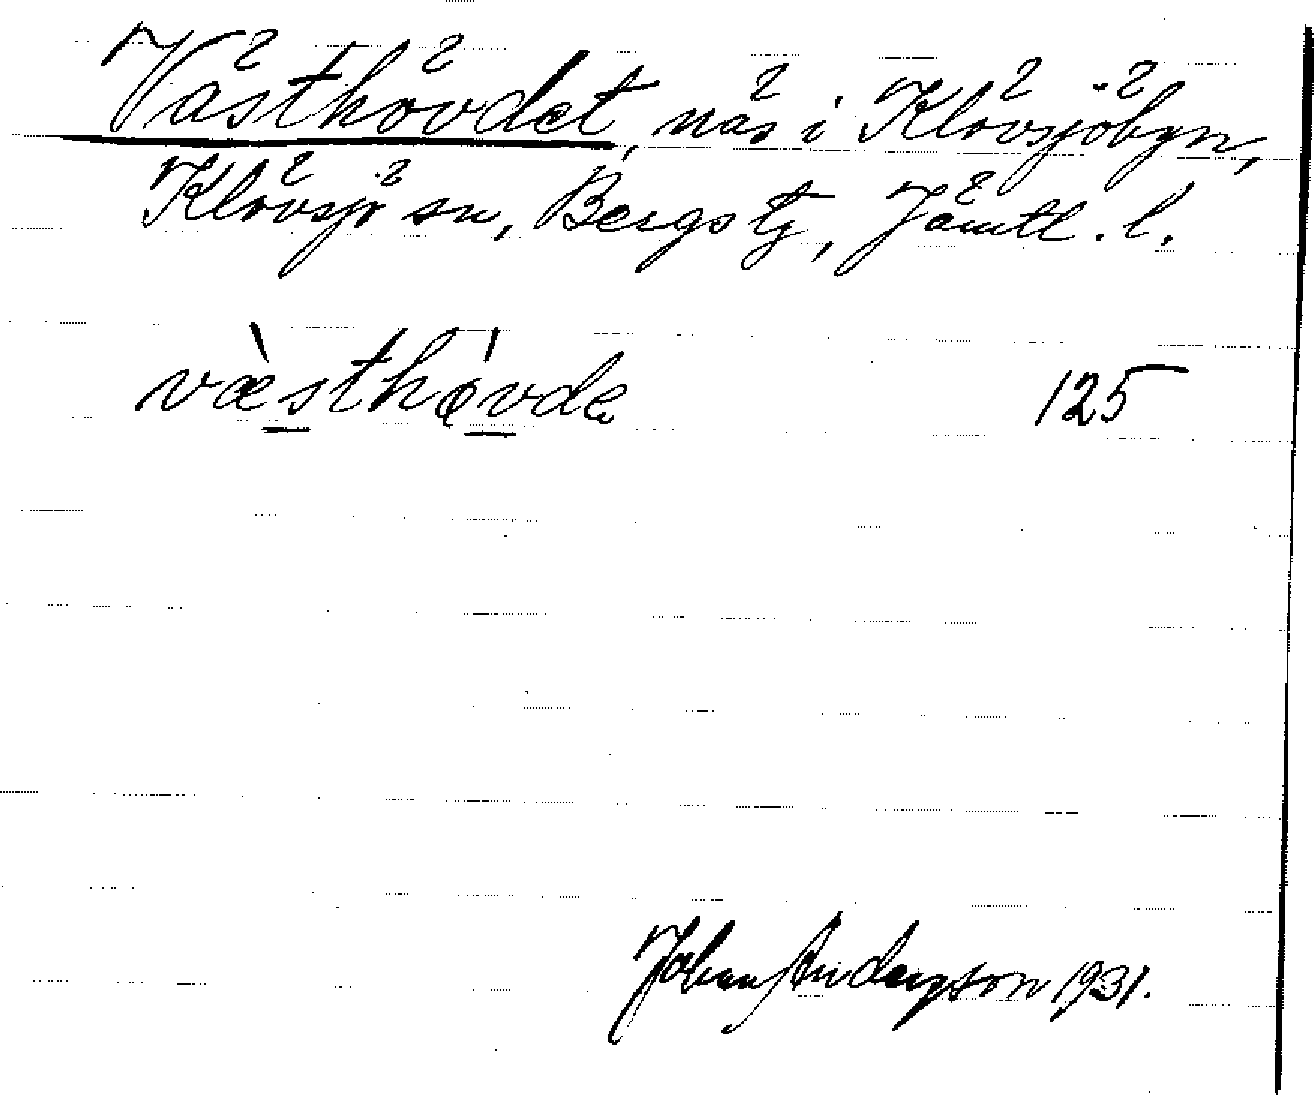 Västhövdet, näs i Klövsjöbyn,
Klövsjö sn, Bergs tg, Jämtl. l.
væ̀sthǿvda 125
Johan Anderzson 1931.